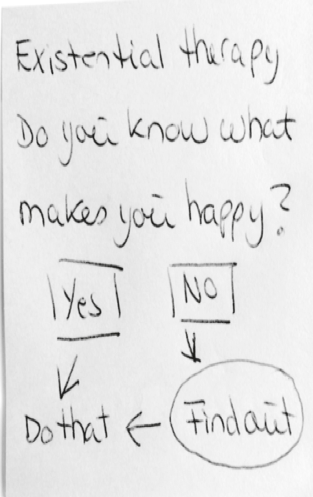 Existential therapy
Do you know what
makes you happy?
Yes
NO
Do that ← Find out